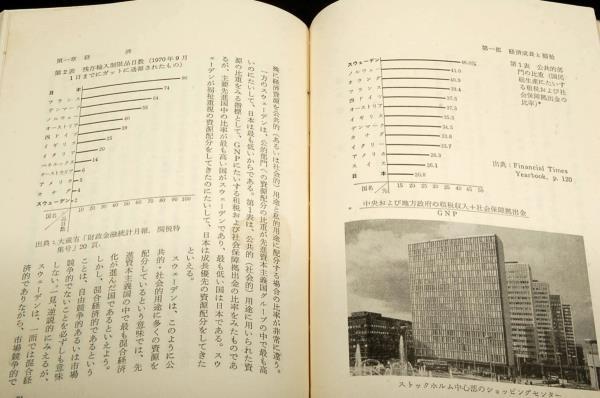 第一部 経済成長と福祉
第1表 公共的部
門の比重（国民
総生産にたいす
る租税および社
会保障拠出金の
比率）*
スウェーデン
ノルウェー
オランダ
フランス
西ドイツ
オーストリア
イギリス
デンマーク
カナダ
イタリー
アメリカ
日本
国名 % 5 10 15 20 25 30 35 40 45 50
出典：Financial Times
Yearbook, p. 120
* 中央および地方政府の租税収入＋社会保障拠出金
GNP
ストックホルム中心部のショッピングセンター
第一章 経済
殊に経済資源を公共的（あるいは社会的）用途と私的用途に配分する場合の比率が非常に違う。
一方のスウェーデンは、公共的部門への資源配分の比重が先進資本主義国グループの中で最も高
いのにたいして、日本は最も低いからである。第1表は、公共的（社会的）用途に用いられた資
源の比重をみる指標として、GNPにたいする租税および社会保障拠出金の比率をみたものであ
るが、主要先進国中の比率が最も高い国がスウェーデンであり、最も低い国は日本である。スウ
ェーデンが福祉重視の資源配分をしてきたのにたいして、日本は成長優先の資源配分をしてきた
といえる。
スウェーデンは、このように公
共的・社会的用途に多くの資源を
配分しているという意味では、先
進資本主義国の中で最も混合経済
化が進んだ国であるといえよう。
しかし、混合経済的であるという
ことは、自由競争的あるいは市場
競争的でないことを必ずしも意味
しない。一見、逆説的にみえるが、
スウェーデンは、一面では混合経
済的でありながら、市場競争的で
第2表 残存輸入制限品目数（1970年9月
1日までにガットに通報されたもの）
日本 90
フランス 74
デンマーク 64
ノルウェー 54
オーストリア 40
西ドイツ 39
イギリス 25
イタリア 20
ベネルックス 14
オーストラリア
アメリカ
カナダ 4
スウェーデン 2
国名 品目数 10 20 30 40 50 60 70 80 90 100
出典：大蔵省「財政金融統計月報，関税特
集号」20 頁．